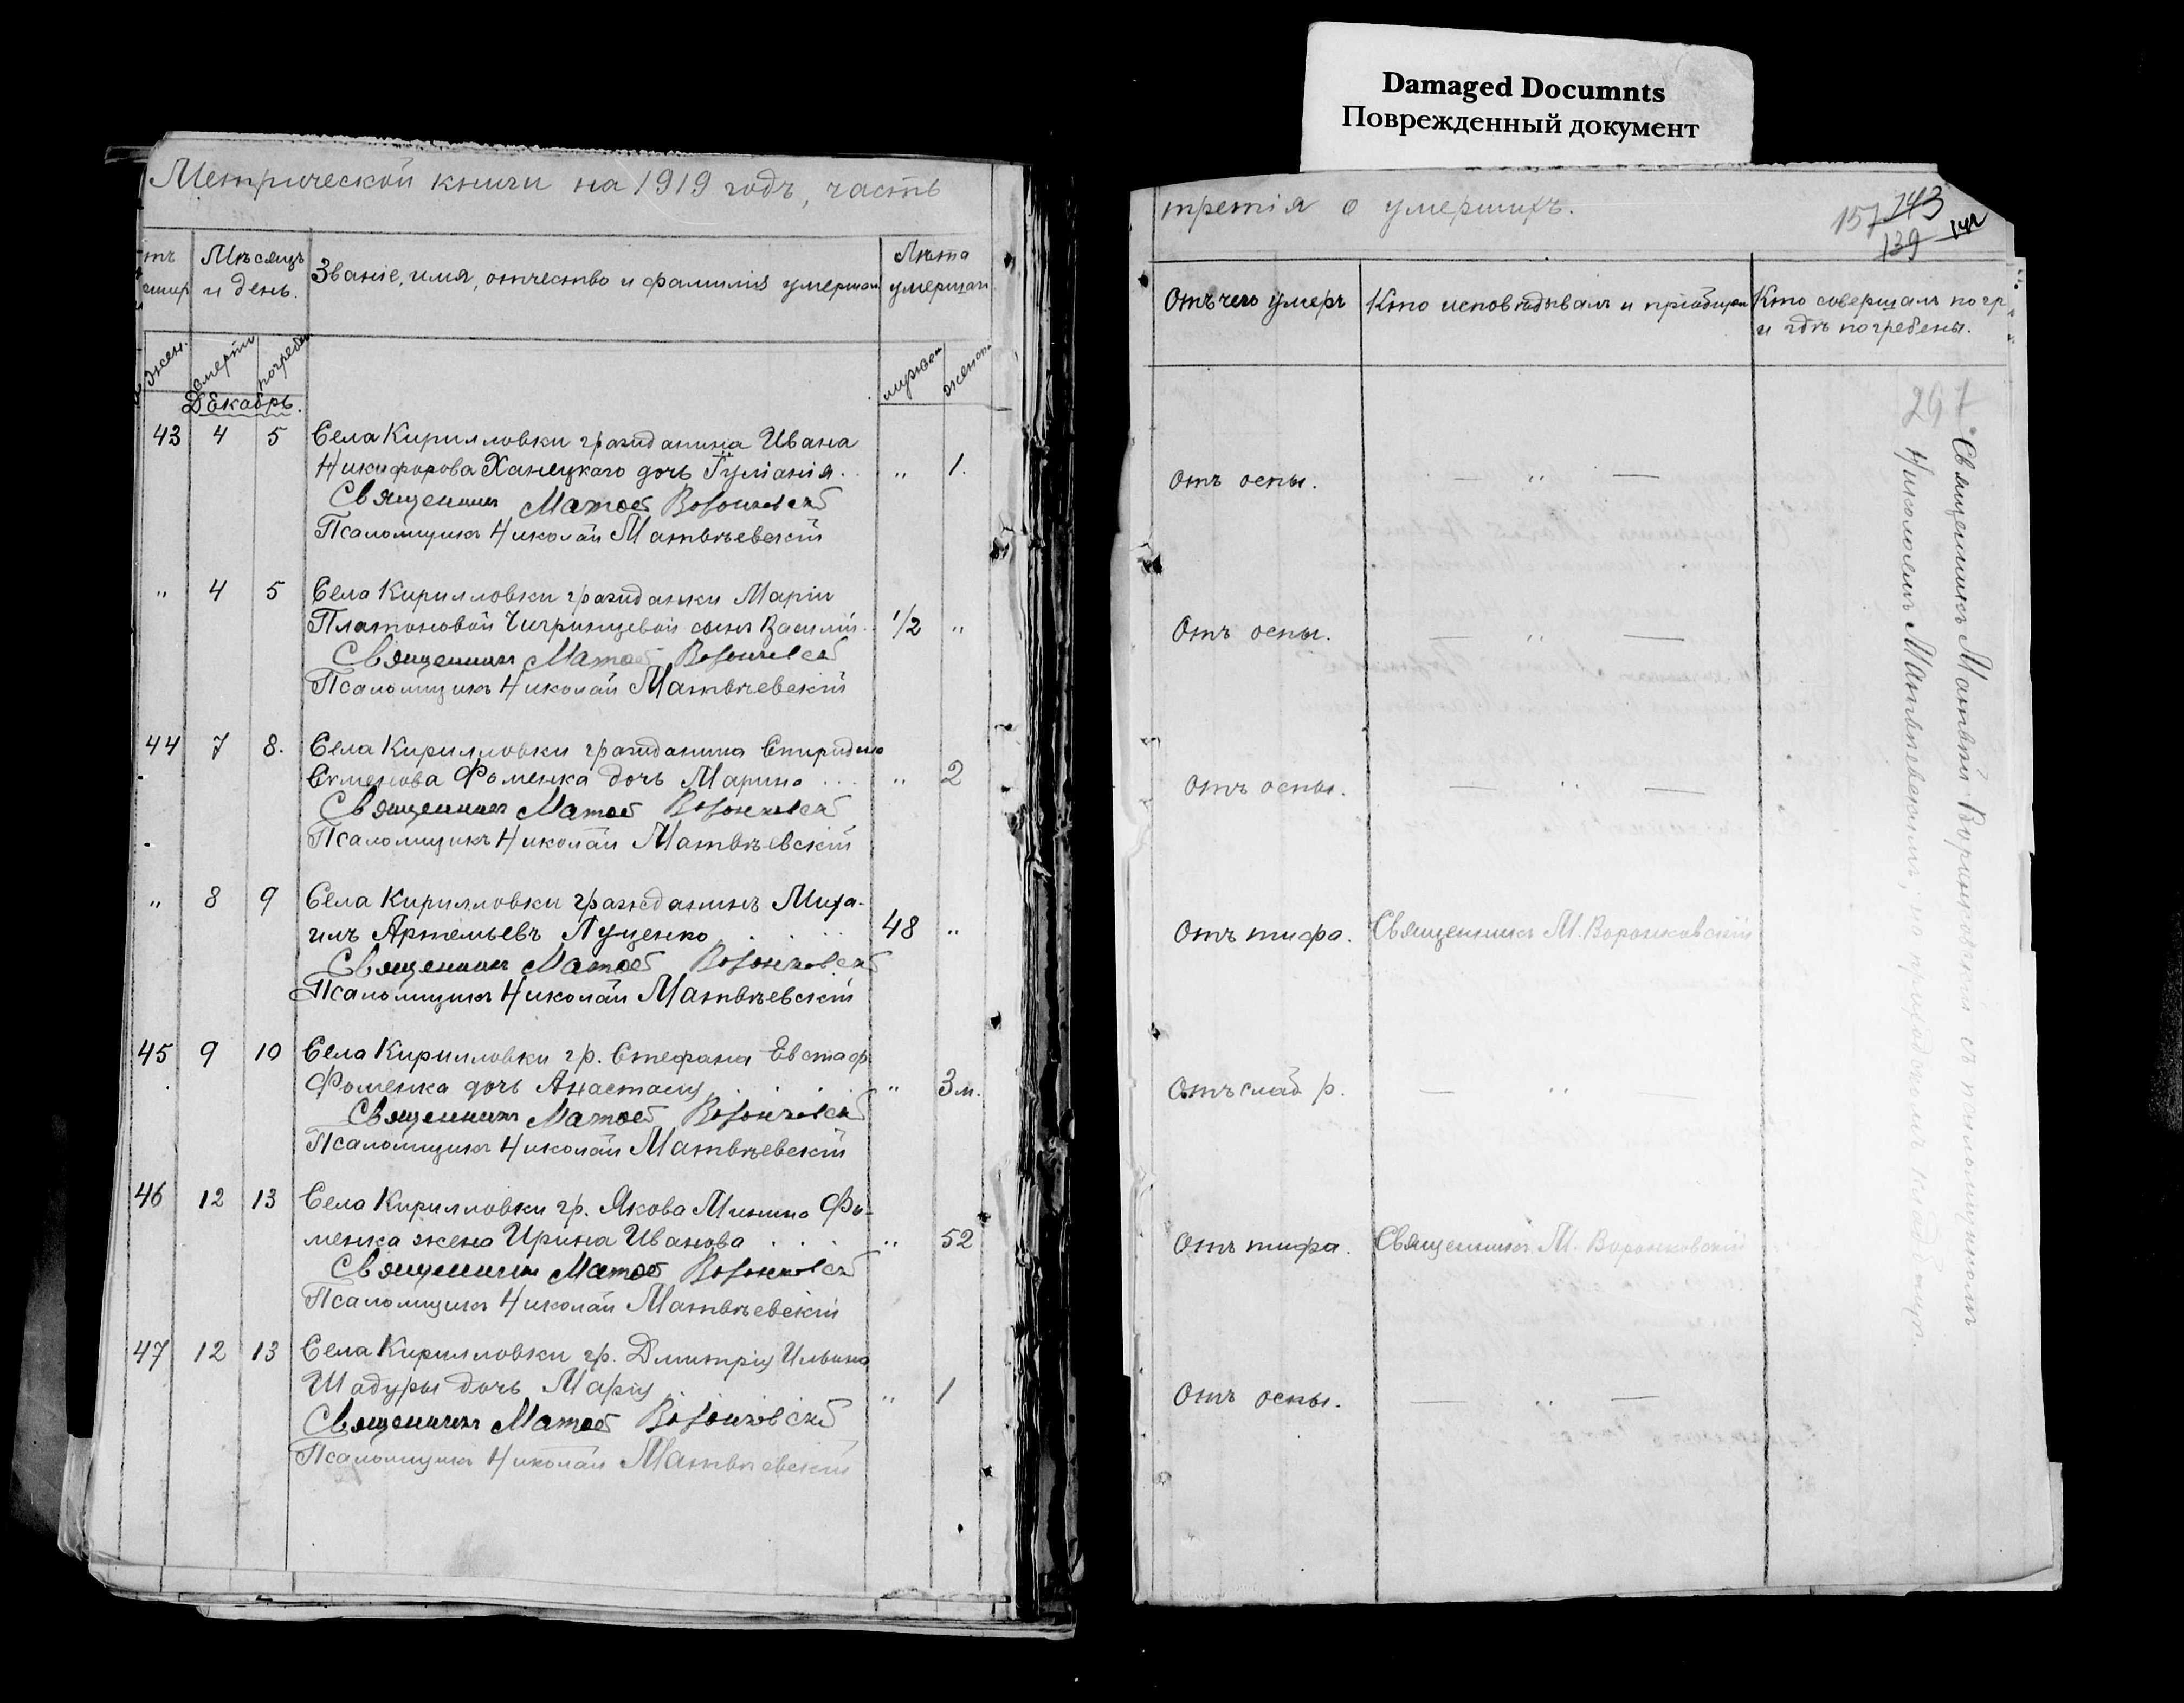 Damaged Documnts
Поврежденный документ
Метрической книги на 1919 годъ, часть
Мѣсяцъ
и день.
Званіе, имя, отчество и фамилія умерши
Лѣта
умерших
жен.
смерти
погребе
мужеск
женск
Декабрь.
43 4 5 Села Кирилловки гражданина Ивана
Никифорова Ханецкаго дочь Іуліанія. „ 1.
Священникъ Матѳей Воронковскій
Псаломщикъ Николай Матвѣевскій
„ 4 5 Села Кирилловки гражданки Маріи
Платоновой Чигринцевой сынъ Василій. 1/2 „
Священникъ Матѳей Воронковскій
Псаломщикъ Николай Матвѣевскій
44 7 8. Села Кирилловки гражданина Спиридона
Семенова Фоменка дочь Марина „ 2
Священникъ Матѳей Воронковскій
Псаломщикъ Николай Матвѣевскій
„ 8 9 Села Кирилловки гражданинъ Миха-
илъ Артемьевъ Луценко 48 „
Священникъ Матѳей Воронковскій
Псаломщикъ Николай Матвѣевскій
45 9 10 Села Кирилловки гр. Стефана Евстаф
Фоменка дочь Анастасія „ 3 м.
Священникъ Матѳей Воронковскій
Псаломщикъ Николай Матвѣевскій
46 12 13 Села Кирилловки гр. Якова Минина Фо-
менка жена Ирина Иванова „ 52
Священникъ Матѳей Воронковскій
Псаломщикъ Николай Матвѣевскій
47 12 13 Села Кирилловки гр. Дмитрія Ильина
Шадуры дочь Марія „ 1
Священникъ Матѳей Воронковскій
Псаломщикъ Николай Матвѣевскій
третія о умершихъ.
157 143
139 142
Отъ чего умеръ
Кто исповѣдывалъ и пріобщал
Кто совершалъ погр
и гдѣ погребены.
Отъ оспы. — „ —
Отъ оспы. — „ —
Отъ оспы. — „ —
Отъ тифа. Священникъ М. Воронковскій
Отъ слаб р. — „ —
Отъ тифа. Священникъ М. Воронковскій
Отъ оспы. — „ —
Священникъ Матвѣй Воронковскій съ псаломщикомъ
Николаемъ Матвѣевскимъ, на приходскомъ кладбищѣ.